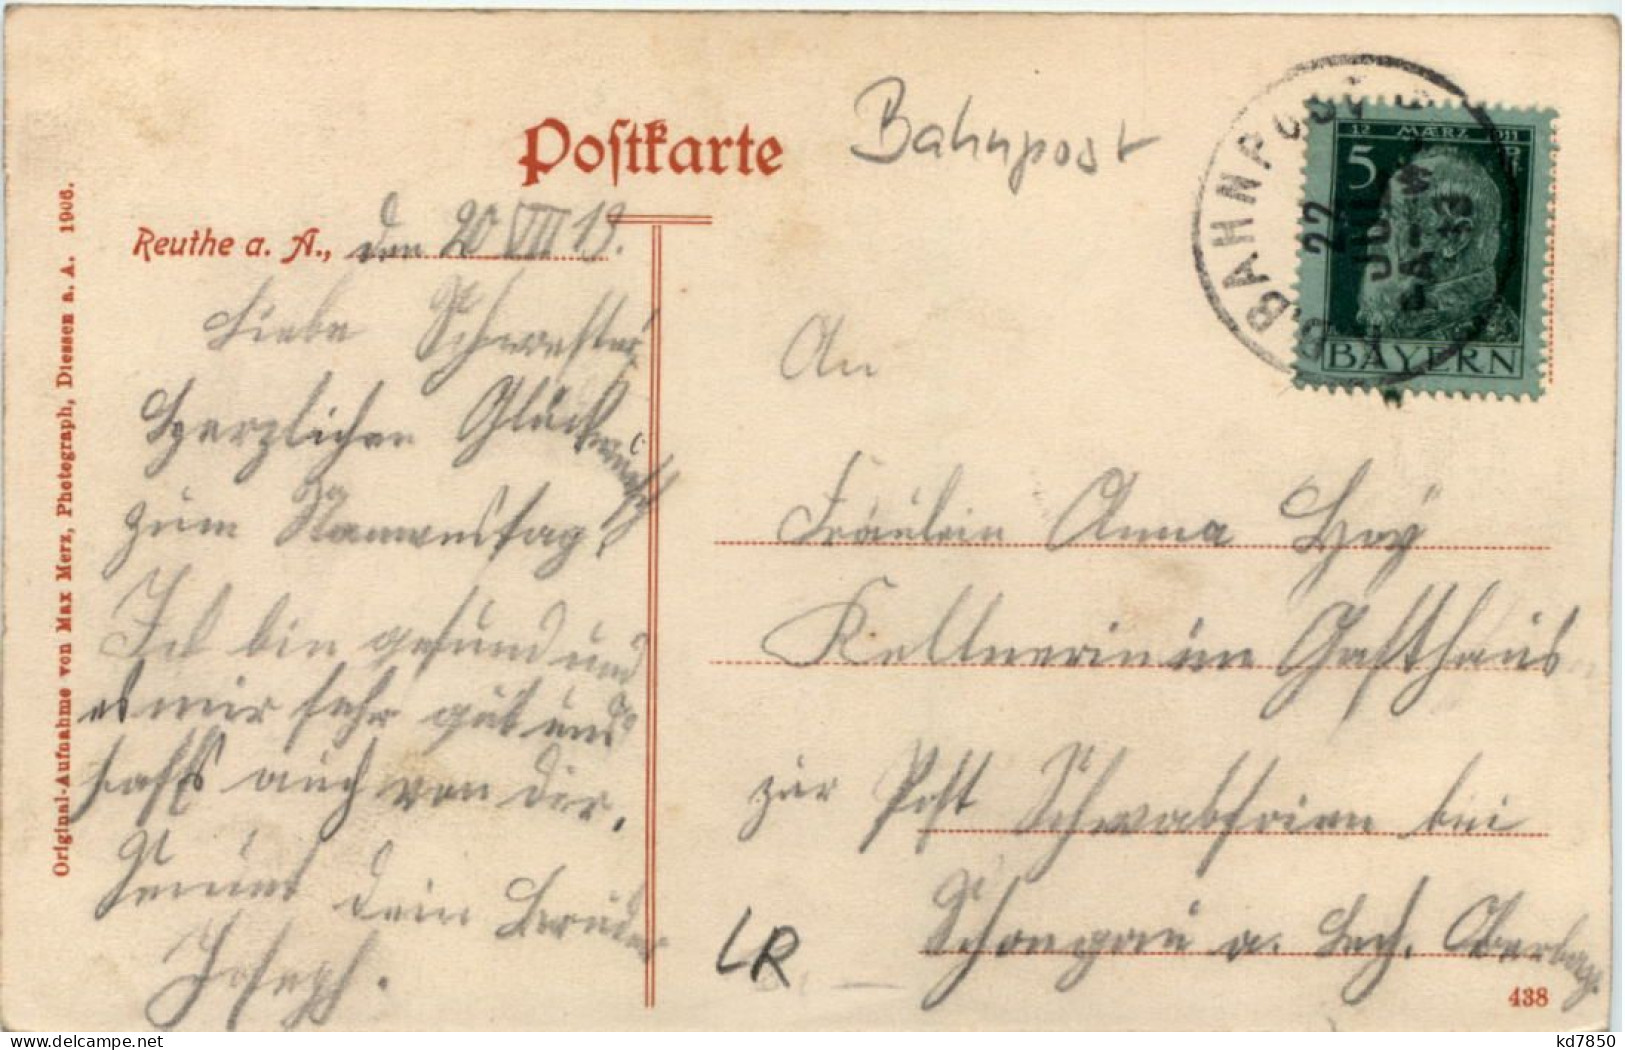 Postkarte
Bahnpost
B.BAHNPOST
22
JUL
13
12 MÆRZ 1911
5
BAYERN
Reuthe a. A., den 20 VII 13.
Liebe Schwester,
Herzlichen Glückwunsch
zum Namenstag.
Ich bin gesund und
es mir sehr gut und
hoffe auch von dir.
dein Bruder
Joseph.
An
Fräulein Anna
Kellnerin im Gasthaus
zur Post Schwabsoien bei
Schongau a. Lech. Oberbay.
LR
438
Original-Aufnahme von Max Merz, Photograph, Diessen a. A. 1906.
kd7850